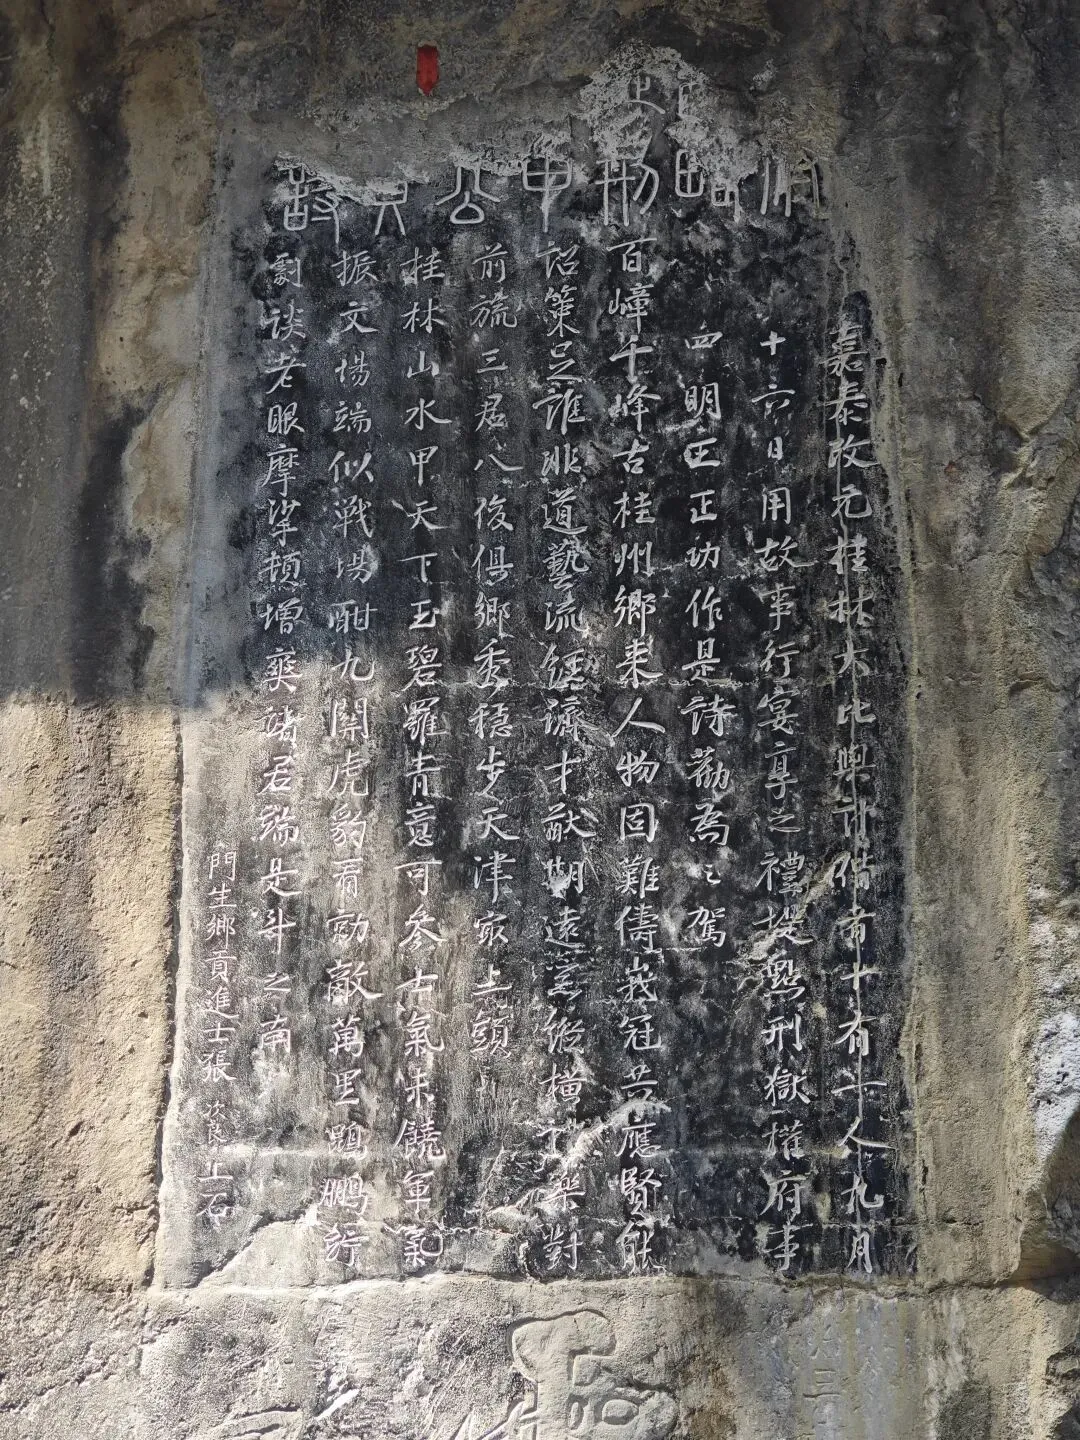 嘉泰改元桂林大比與計偕者十有一人九月
十六日用故事行宴享之禮提點刑獄權府事
四明王正功作是詩勸為之駕
百嶂千峰古桂州鄉來人物固難儔峩冠共應賢能
詔策足誰非道藝流經濟才猷期遠業縱橫禮樂對
前旒三君八俊俱鄉秀穩步天津最上頭
桂林山水甲天下玉碧羅青意可參士氣未饒軍氣
振文場端似戰場酣九關虎豹看勍敵萬里鵾鵬佇
劇談老眼摩挲頓增爽諸君端是斗之南
門生鄉貢進士張次良上石